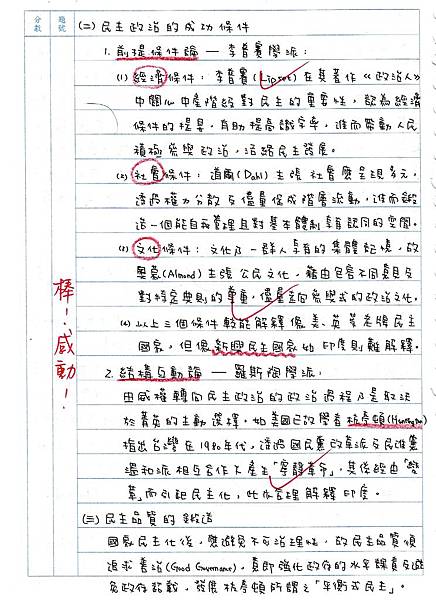 分數 題號
(二) 民主政治的成功條件
1. 前提條件論 — 李普賽學派:
(1) 經濟條件: 李普賽(Lipset)在其著作《政治人》
中關心中產階級對民主的重要性, 認為經濟
條件的提昇, 有助提高識字率, 進而帶動人民
積極參與政治, 活絡民主發展。
(2) 社會條件: 道爾(Dahl)主張社會應呈現多元,
透過權力分散及儘量促成階層流動, 進而締
造一個能自我管理且對基本體制享有認同的空間。
(3) 文化條件: 文化乃一群人享有的集體記憶, 故
奧蒙(Almond)主張公民文化, 藉由包容不同意見及
對特定典則的尊重, 儘量走向參與式的政治文化。
(4) 以上三個條件較能解釋像美、英等老牌民主
國家, 但像新興民主國家如印度則難解釋。
2. 結構互動論 — 羅斯陶學派:
由威權轉向民主政治的政治過程乃是取決
於菁英的主動選擇, 如美國已故學者杭亭頓(Huntington)
指出台灣在1980年代, 透過國民黨改革派及民進黨
溫和派相互合作下產生「寧靜革命」, 其係經由「變
革」而引起民主化, 此亦合理解釋印度。
(三) 民主品質的鍛造
國家民主化後, 應避免不可治理性, 故民主品質須
追求善治(Good Governance), 意即強化政府的水平課責及避
免政府超載, 發展杭亭頓所謂之「平衡式民主」。
棒!感動!